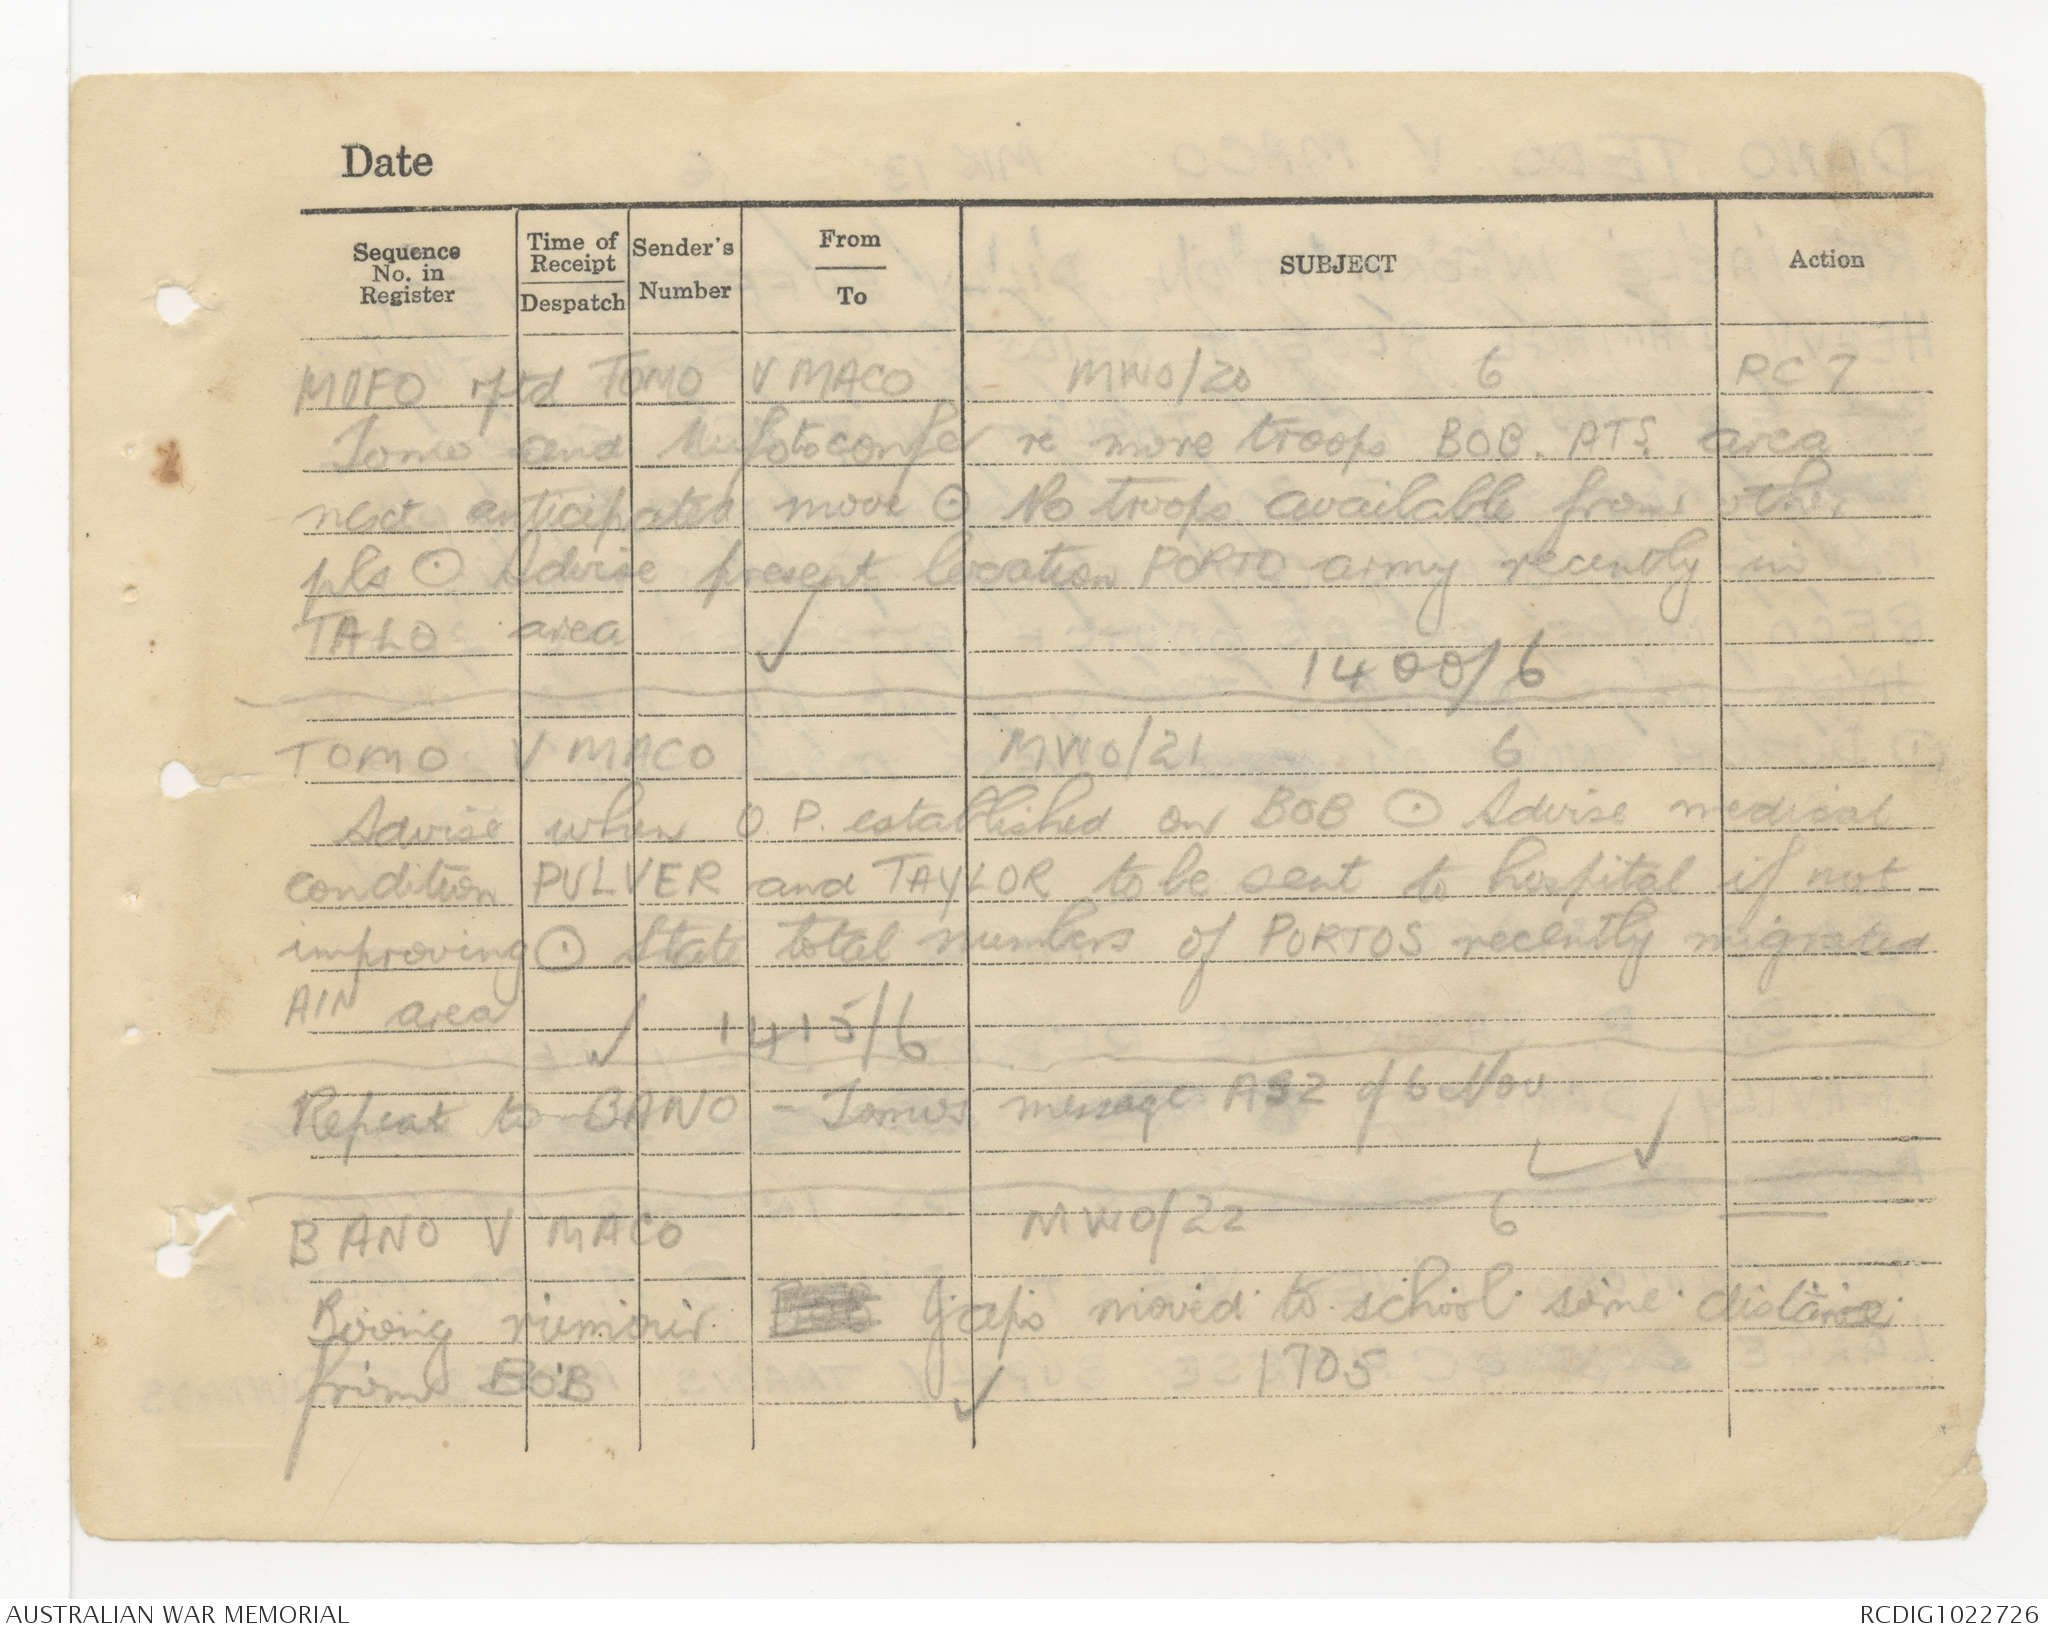 Date
Sequence No. in Register
Time of Receipt
Despatch
Sender's Number
From
To
SUBJECT
Action
MUFO rptd TOMO V MACO MWO/20 6 RC 7
Tomo and Mufo to confer re more troops BOB. ATS. area
next anticipated move ⊙ No troops available from other
pls ⊙ Advise present location PORTO army recently in
TALO area
1400/6
TOMO V MACO MWO/21 6
Advise when O.P. established on BOB ⊙ Advise medical
condition PULVER and TAYLOR to be sent to hospital if not
improving ⊙ State total numbers of PORTOS recently migrated
AIN area 1415/6
Repeat to BANO - Tomos message A92 of 6 Nov
BANO V MACO MWO/22 6
Boong rumour Japs moved to school some distance
from BOB 1705
AUSTRALIAN WAR MEMORIAL
RCDIG1022726